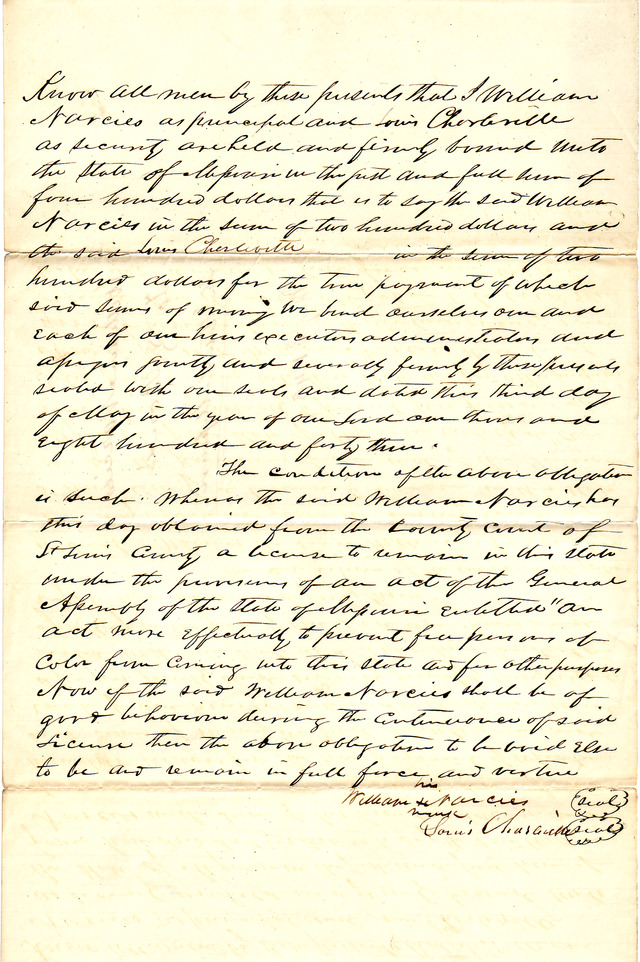 Know all men by these presents that I William
Narcies as principal and Louis Charleville
as security are held and firmly bound unto
the State of Missouri in the just and full sum of
four hundred dollars that is to say the said William
Narcies in the sum of two hundred dollars and
the said Louis Charleville in the sum of two
hundred dollars for the true payment of which
said sums of money we bind ourselves our and
each of our heirs executors administrators and
assigns jointly and severally firmly by these presents
sealed with our seals and dated this third day
of May in the year of our Lord one thousand
Eight hundred and forty three.
The condition of the above obligation
is such. Whereas the said William Narcies has
this day obtained from the County Court of
St Louis County a license to remain in this state
under the provisions of an act of the General
Assembly of the State of Missouri Entitled "An
act more Effectually to prevent free persons of
Color from Coming into this state and for other purposes
Now if the said William Narcies shall be of
good behaviour during the Continuance of said
License then the above obligation to be void Else
to be and remain in full force and virtue
his
William x Narcies (seal)
mark
Louis Charleville (seal)